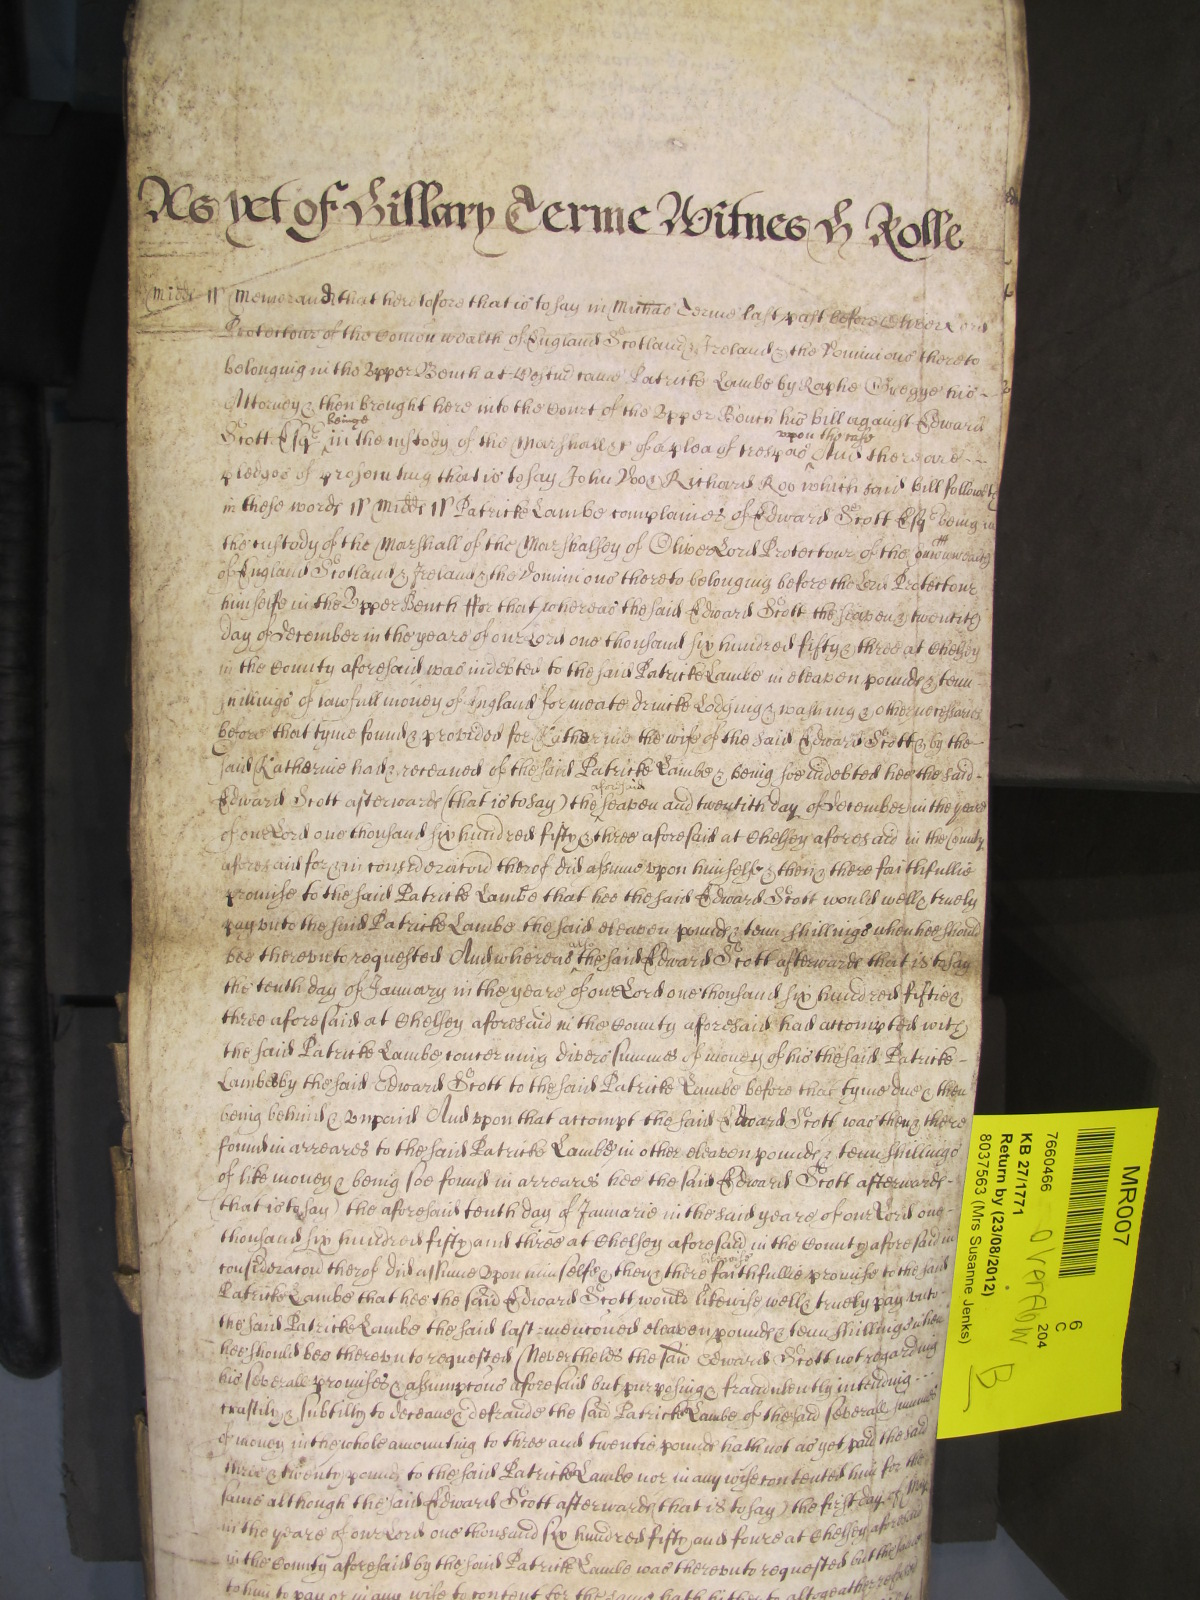 As yet of Hillary Terme Witnes H Rolle
Midds ss Memorand that heretofore that is to say in Michas Terme last past before Oliver Lord
Protectour of the Comon wealth of England Scotland & Ireland & the Dominions thereto
belonging in the Upper Bench at Westm came Patricke Lambe by Raphe Gregge his
Attorney & then brought here into the Court of the Upper Bench his bill against Edward
Scott Esqr beinge in the custody of the Marshall &c of a plea of trespas upon the case And there are
pledges of prosecuting that is to say John Doo & Richard Roo which said bill followeth
in these words ss Midds ss Patricke Lambe complaines of Edward Scott Esqr being in
the custody of the Marshall of the Marshalsey of Oliver Lord Protectour of the
of England Scotland & Ireland & the Dominions thereto belonging before the Lord Protectour
himselfe in the Upper Bench ffor that whereas the said Edward Scott the seaven & twentith
day of December in the yeare of our Lord one thousand six hundred fifty & three at Chelsey
in the County aforesaid was indebted to the said Patricke Lambe in eleaven pounds & tenn
shillings of lawfull money of England for meate drincke Lodging & washing & other necessaries
before that tyme found & provided for Katherine the wife of the said Edward Scott & by the
said Katherine had & receaved of the said Patricke Lambe & being soe indebted hee the said
Edward Scott afterwards (that is to say) the aforesaid seaven and twentith day of December in the yeare
of our Lord one thousand six hundred fifty & three aforesaid at Chelsey aforesaid in the County
aforesaid for & in consideracon therof did assume upon himselfe & then & there faithfullie
promise to the said Patricke Lambe that hee the said Edward Scott would well & truely
pay unto the said Patricke Lambe the said eleaven pounds & tenn shillings when hee should
bee thereunto requested And whereas also the said Edward Scott afterwards that is to say
the tenth day of January in the yeare of our Lord one thousand six hundred fiftie &
three aforesaid at Chelsey aforesaid in the County aforesaid had accompted with
the said Patricke Lambe concerning divers summes of money of his the said Patricke
Lambe by the said Edward Scott to the said Patricke Lambe before that tyme due & then
being behind & unpaid And upon that accompt the said Edward Scott was then & there
found in arreares to the said Patricke Lambe in other eleaven pounds & tenn shillings
of like money & being soe found in arreares hee the said Edward Scott afterwards
(that is to say) the aforesaid tenth day of Januarie in the said yeare of our Lord one
thousand six hundred fifty and three at Chelsey aforesaid in the County aforesaid in
consideracon therof did assume upon himselfe & then & there likewise faithfullie promise to the said
Patricke Lambe that hee the said Edward Scott would likewise well & truely pay unto
the said Patricke Lambe the said last menconed eleaven pounds & tenn shillings when
hee should bee thereunto requested Neverthelesse the said Edward Scott not regarding
his severall promises & assumptons aforesaid but purposing & fraudulently intending
craftily & subtilly to deceave & defraude the said Patricke Lambe of the said severall summes
of money in the whole amounting to three and twentie pounds hath not as yet paid the said
three & twenty pounds to the said Patricke Lambe nor in any wise contented him for the
same although the said Edward Scott afterwards (that is to say) the first day of May
in the yeare of our Lord one thousand six hundred fifty and foure at Chelsey aforesaid
in the County aforesaid by the said Patricke Lambe was thereunto requested but the same
to him to pay or in any wise to content for the same hath hitherto altogeather refused
MR007
6
C
204
7660466
KB 27/1771
Return by (23/08/2012)
8037563 (Mrs Susanne Jenks)
overflow
B